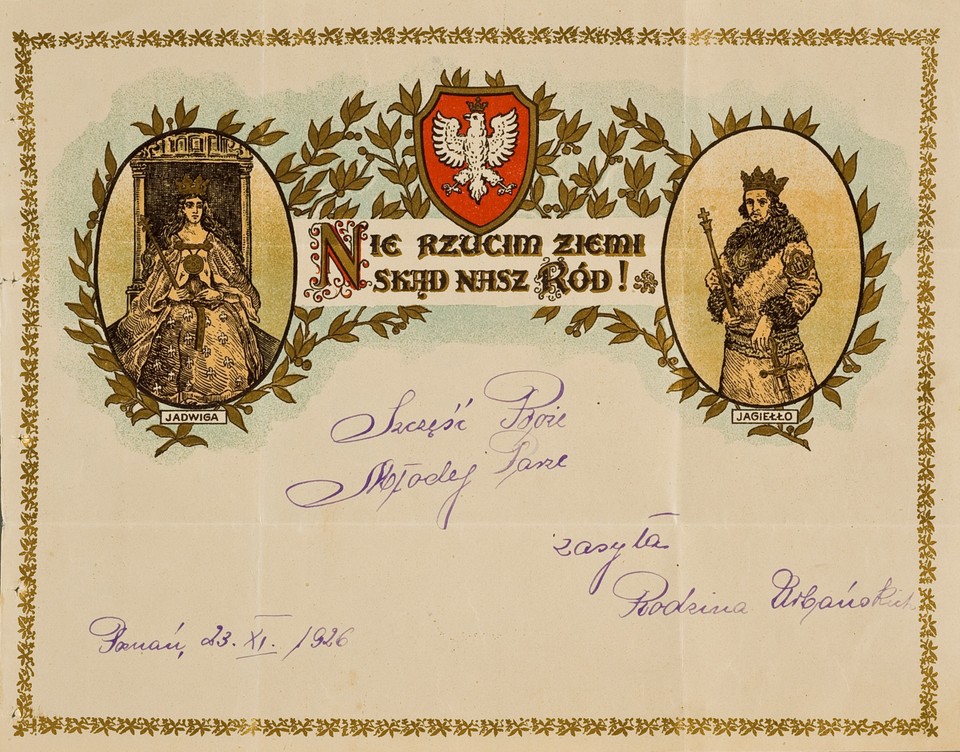 NIE RZUCIM ZIEMI
SKĄD NASZ RÓD!
JADWIGA
JAGIEŁŁO
Szczęść Boże
Młodej Parze
zasyła
Rodzina Urbańskich
Poznań, 23. XI. 1926